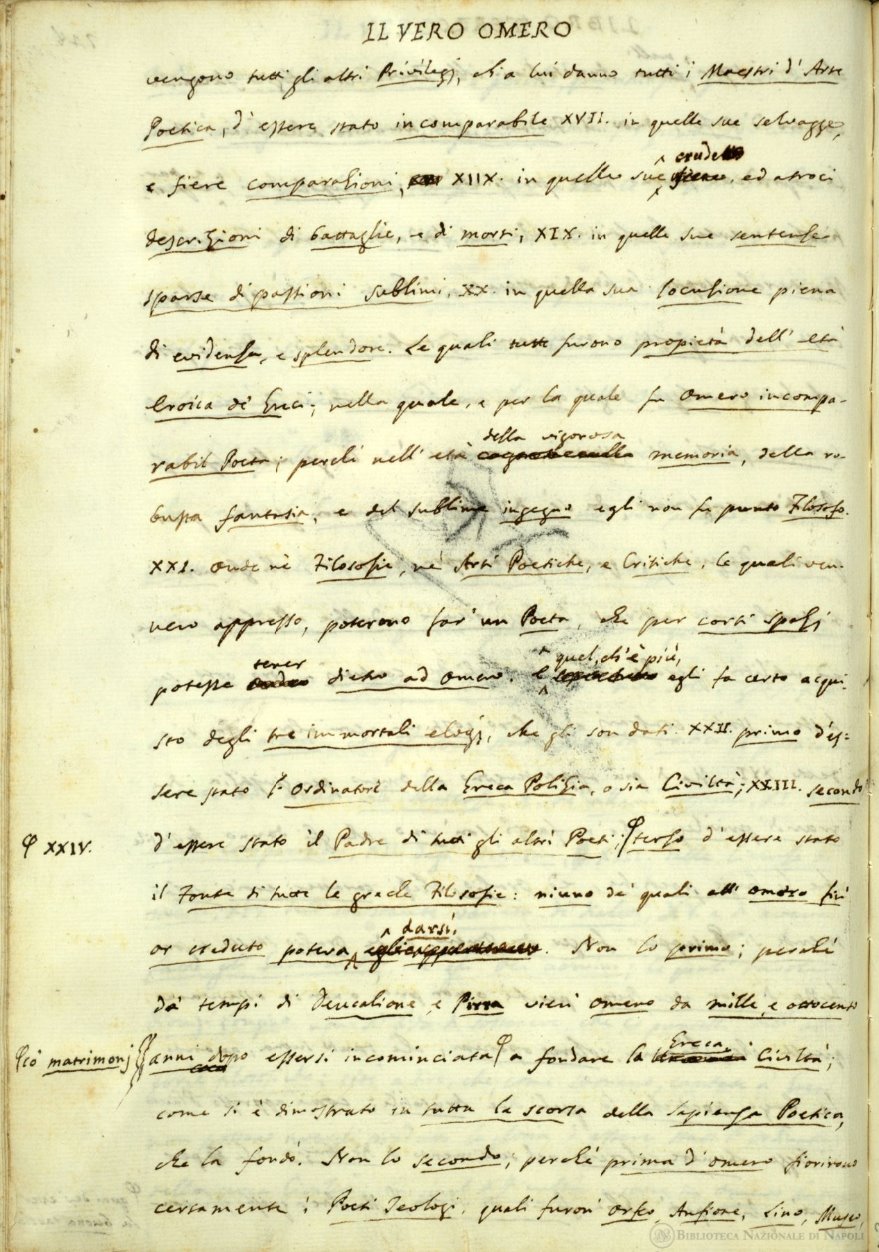 IL VERO OMERO
vengono tutti gli altri Privilegj, ch'a lui danno tutti i Maestri d'Arte
Poetica, d'essere stato incomparabile XVII. in quelle sue selvagge,
e fiere comparazioni, XIIX. in quelle sue crude, ed atroci
descrizioni di battaglie, e di morti, XIX. in quelle sue sentenze
sparse di passioni sublimi, XX. in quella sua locuzione piena
di evidenza, e splendore. Le quali tutte furono propietà dell'età
Eroica de' Greci; nella quale, e per la quale fu Omero incompa-
rabil Poeta; perchè nell'età della vigorosa memoria, della ro-
busta fantasia, e del sublime ingegno egli non fu punto Filosofo.
XXI. Onde nè Filosofie, nè Arti Poetiche, e Critiche, le quali ven-
nero appresso, poterono far' un Poeta, che per corti spazj
potesse tener dietro ad Omero. E quel, ch'è più, egli fa certo acqui-
sto degli tre immortali elogj, che gli son dati XXII. primo d'es-
sere stato l'Ordinatore della Greca Polizia, o sia Civiltà; XXIII. secondo
d'essere stato il Padre di tutti gli altri Poeti; terzo d'essere stato
XXIV.
il Fonte di tutte le greche Filosofie: niuno de' quali all'Omero fin'
or creduto poteva darsi. Non lo primo; perchè
da' tempi di Deucalione, e Pirra vien' Omero da mille, e ottocento
anni dopo essersi incominciata a fondare la Greca Civiltà;
co' matrimonj
come si è dimostrato in tutta la scorsa della Sapienza Poetica,
che la fondò. Non lo secondo; perchè prima d'Omero fiorirono
certamente i Poeti Teologi, quali furon' Orfeo, Anfione, Lino, Museo,
BIBLIOTECA NAZIONALE DI NAPOLI